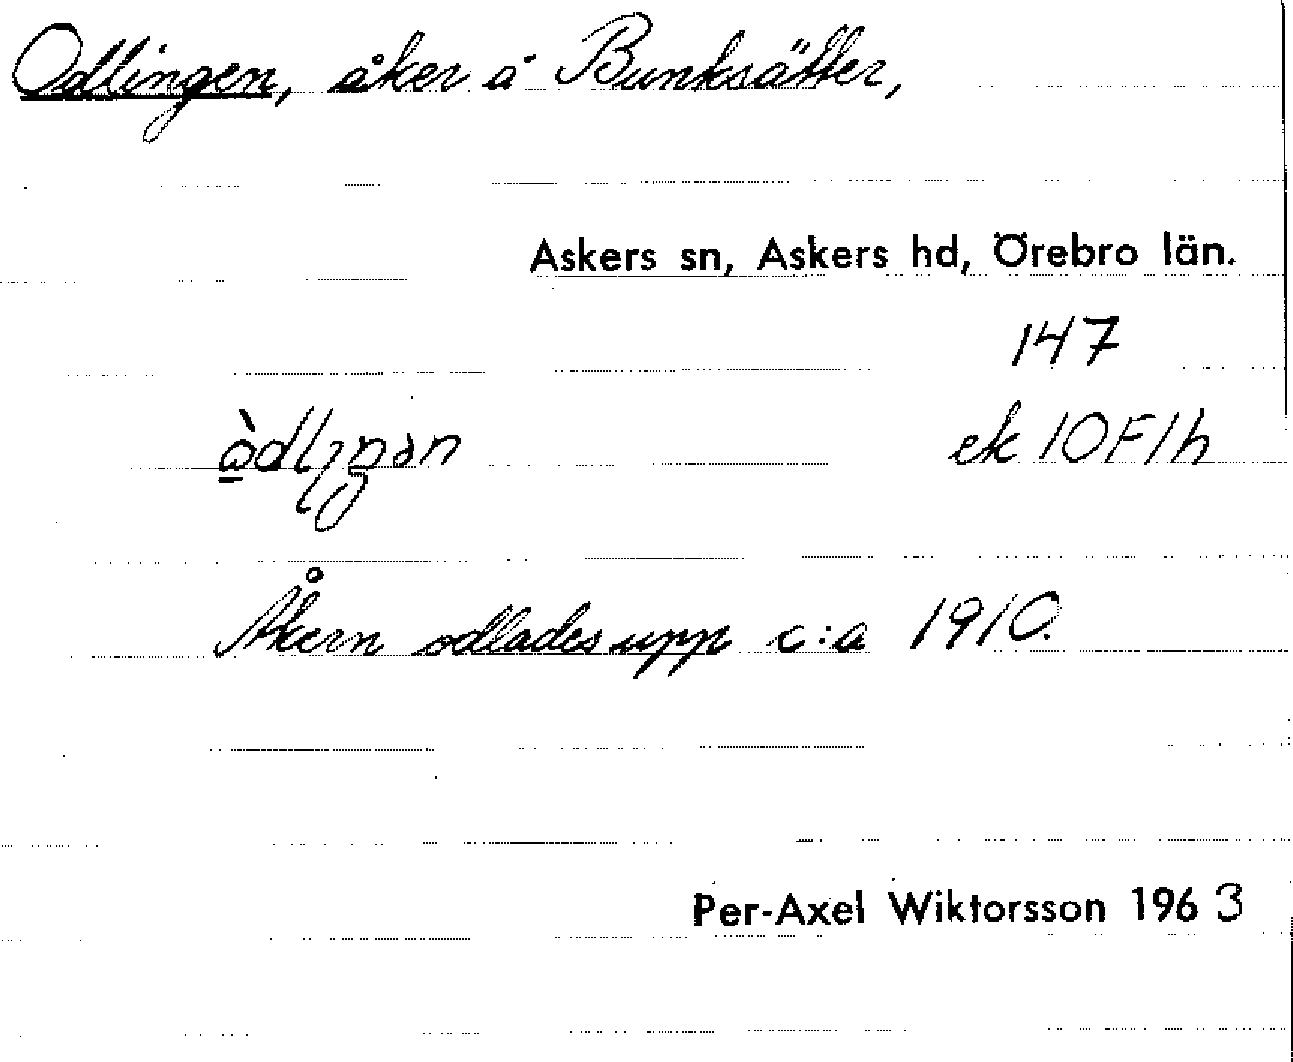 Odlingen, åker å Bunksätter,
Askers sn, Askers hd, Örebro län.
147
ek 10F1h
Åkern odlades upp c:a 1910.
Per-Axel Wiktorsson 1963